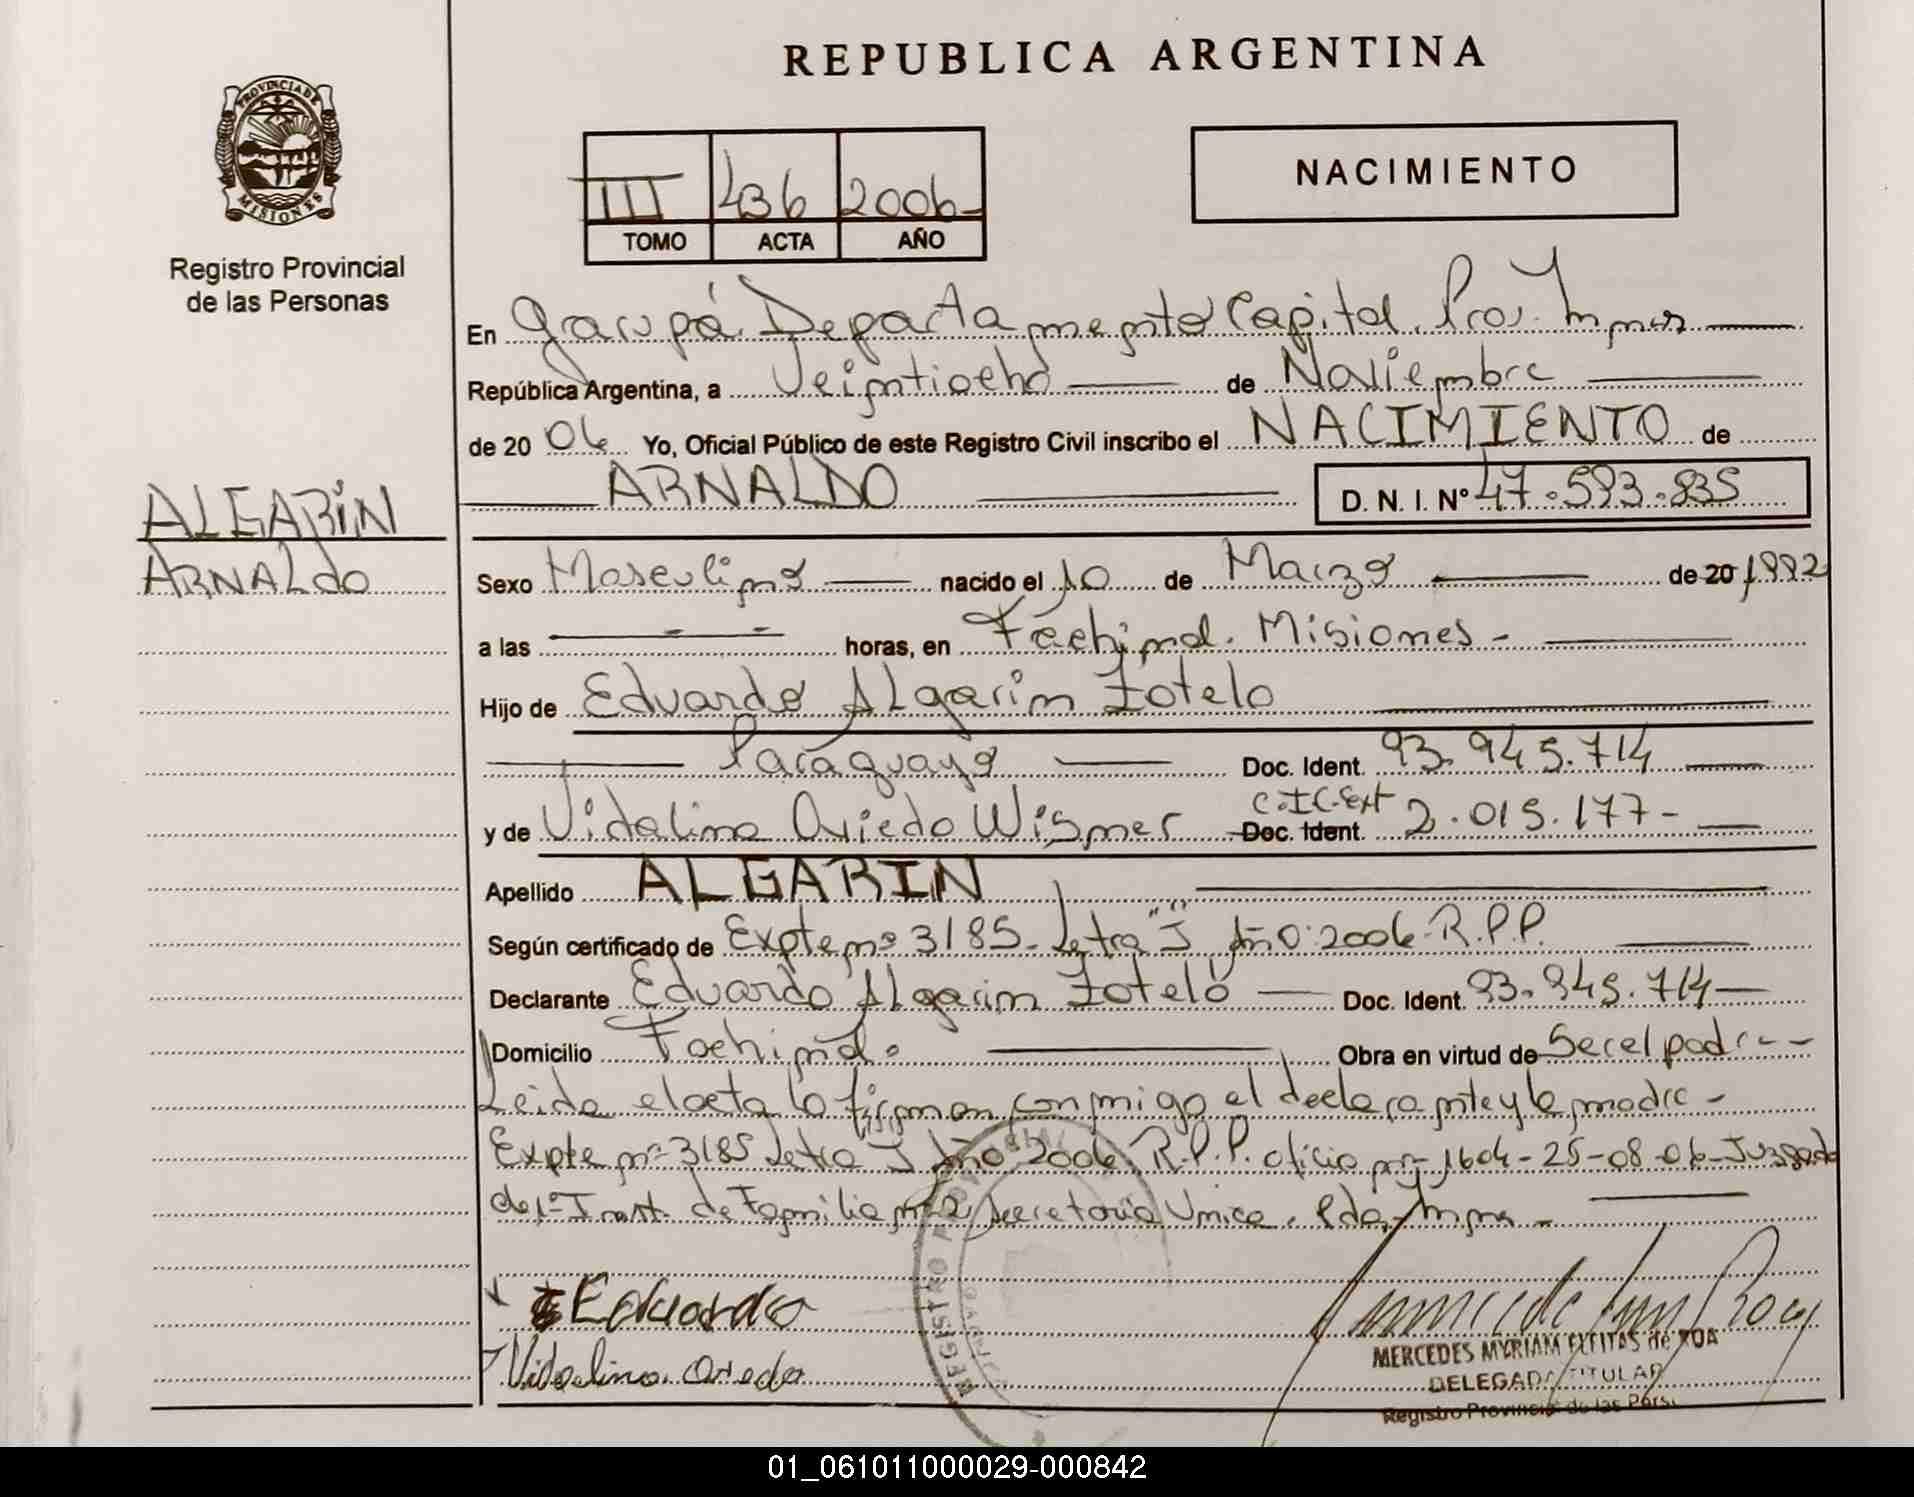 REPUBLICA ARGENTINA
PROVINCIA DE
MISIONES
Registro Provincial
de las Personas
NACIMIENTO
III 436 2006-
TOMO ACTA AÑO
En Garupá. Departamento Capital. Pcia. Mnes
República Argentina, a Veintiocho de Noviembre
de 20 06 Yo, Oficial Público de este Registro Civil inscribo el NACIMIENTO de
ARNALDO D. N. I. Nº 47.593.835
ALGARÍN
ARNALdo
Sexo Masculino nacido el 10 de Marzo de 20 1992
a las - - horas, en Fachinal. Misiones -
Hijo de Eduardo Algarin Zotelo
Paraguayo Doc. Ident. 93.945.714
y de Vidalina Oviedo Wismer C.I.C.Ext Doc. Ident. 2.015.177-
Apellido ALGARIN
Según certificado de Expte nº 3185- Letra "J" Año: 2006- R.P.P.
Declarante Eduardo Algarin Zotelo Doc. Ident. 93.945.714
Domicilio Fachinal. Obra en virtud de Ser el padre --
Leida el acta la firman conmigo el declarante y la madre -
Expte nº 3185 Letra J Año 2006 R.P.P. oficio nº 1604-25-08-06- Juzgado
de 1º Inst. de Familia nº 2 Secretaria Unica. Pdas, Mnes -
Eduardo
Vidalina. Oviedo
REGISTRO PROVINCIAL
MERCEDES MYRIAM FLEITAS de ROA
DELEGADA TITULAR
Registro Provincial de las Pers.
01_061011000029-000842